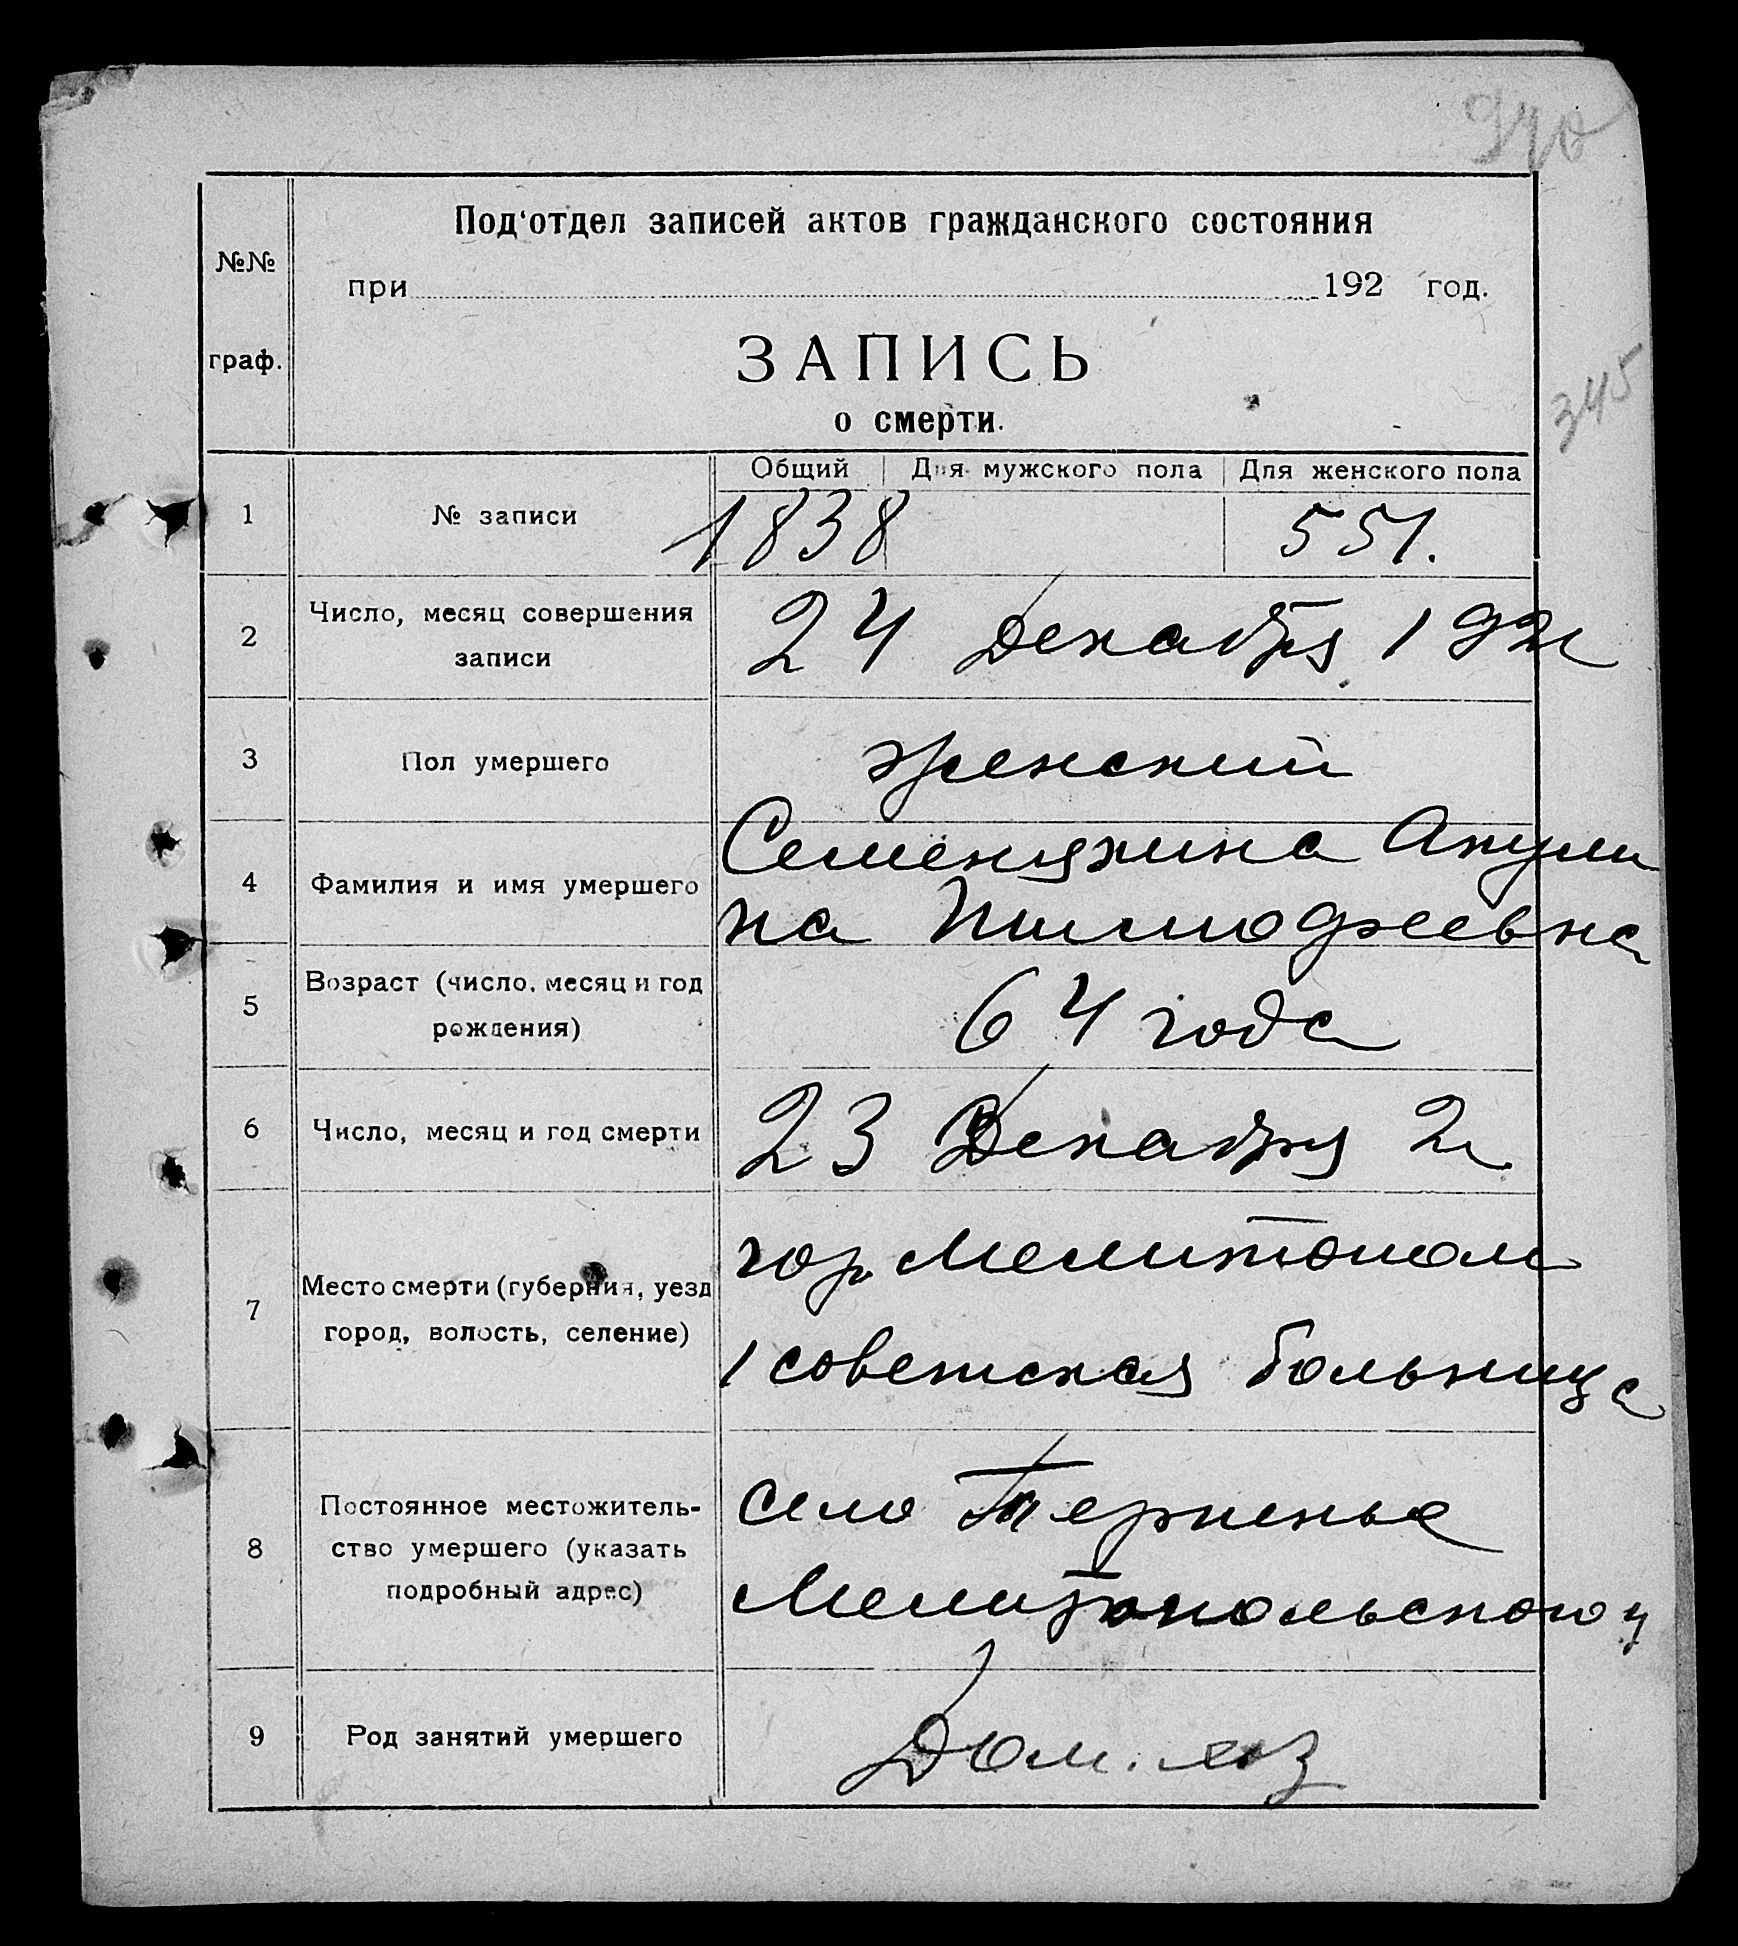 940
Под'отдел записей актов гражданского состояния
№№
при 192 год.
345
ЗАПИСЬ
граф.
о смерти.
Общий Для мужского пола Для женского пола
1 № записи 1838 551.
2 Число, месяц совершения
записи
24 Декабря 192
3 Пол умершего женский
4 Фамилия и имя умершего
Семенякина Акули
на Тимофеевна
5 Возраст (число, месяц и год
рождения)
64 года
6 Число, месяц и год смерти 23 Декабря
7 Место смерти (губерния, уезд
город, волость, селение)
гор. Мелитополь
1 советская больница
8 Постоянное местожитель-
ство умершего (указать
подробный адрес)
село Терпенье
Мелитопольского у
9 Род занятий умершего Дом. хоз